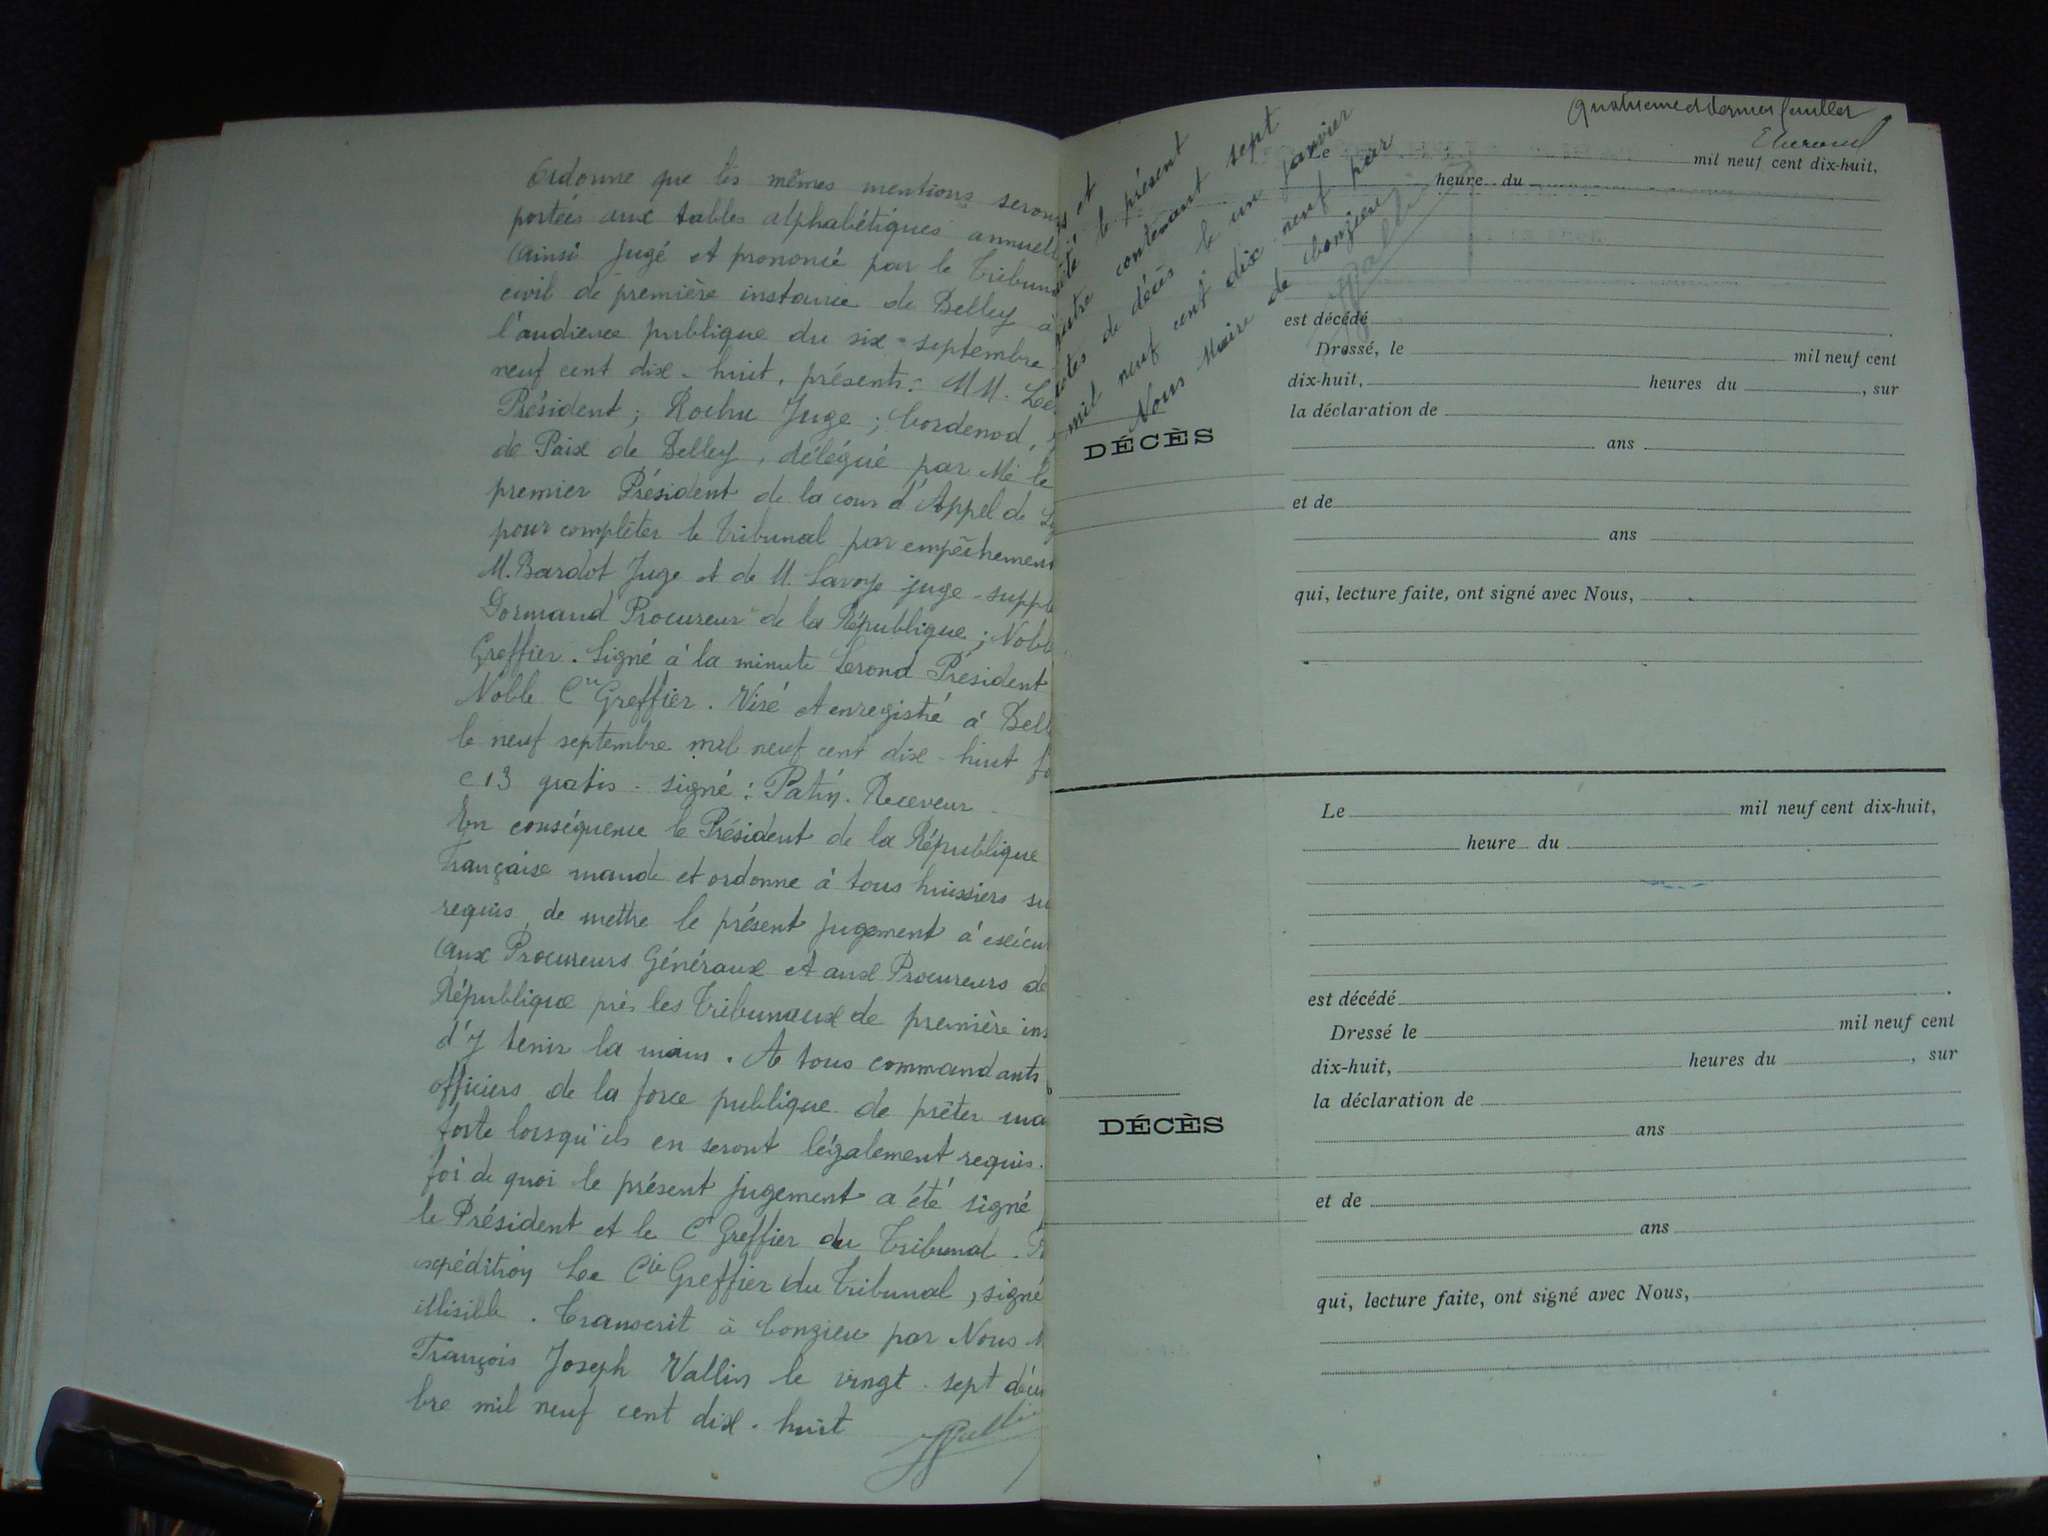 Ordonne que les mêmes mentions seron
portées aux tables alphabétiques annuell
ainsi jugé et prononcé par le Tribun
civil de première instance de Belley à
l'audience publique du six septembre
neuf cent dix-huit, présents: MM. Ler
Président; Rochu Juge; Cordenod,
de Paix de Belley, délégué par Mr le
premier Président de la cour d'Appel de Ly
pour compléter le Tribunal par empêchement
M. Bardot Juge et de M. Savoye juge-supplé
Dormand Procureur de la République; Noble
Greffier. Signé à la minute Lerond Président
Noble Cis Greffier. Visé et enregistré à Bell
le neuf septembre mil neuf cent dix-huit fo
c 13 gratis. signé: Patin. Receveur
En conséquence le Président de la République
Française mande et ordonne à tous huissiers su
requis, de mettre le présent jugement à exécu
aux Procureurs Généraux et aux Procureurs de
République près les Tribunaux de première ins
d'y tenir la main. A tous commandants
officiers de la force publique de prêter ma
forte lorsqu'ils en seront légalement requis.
foi de quoi le présent jugement a été signé
le Président et le Cis Greffier du Tribunal. P
expédition Le Cis Greffier du Tribunal, signé
illisible. Transcrit à Conzieu par Nous M
François Joseph Vallin le vingt-sept décem
bre mil neuf cent dix-huit
JVallin
et
le présent
contenant sept
actes de décès le un janvier
mil neuf cent dix neuf par
Nous Maire de Conzieu
JVallin
Quatrième et dernier feuillet
Le mil neuf cent dix-huit,
heure du
est décédé
Dressé, le mil neuf cent
dix-huit, heures du , sur
la déclaration de
ans
DÉCÈS
et de
ans
qui, lecture faite, ont signé avec Nous,
Le mil neuf cent dix-huit,
heure du
est décédé
Dressé le mil neuf cent
dix-huit, heures du , sur
la déclaration de
DÉCÈS
ans
et de
ans
qui, lecture faite, ont signé avec Nous,